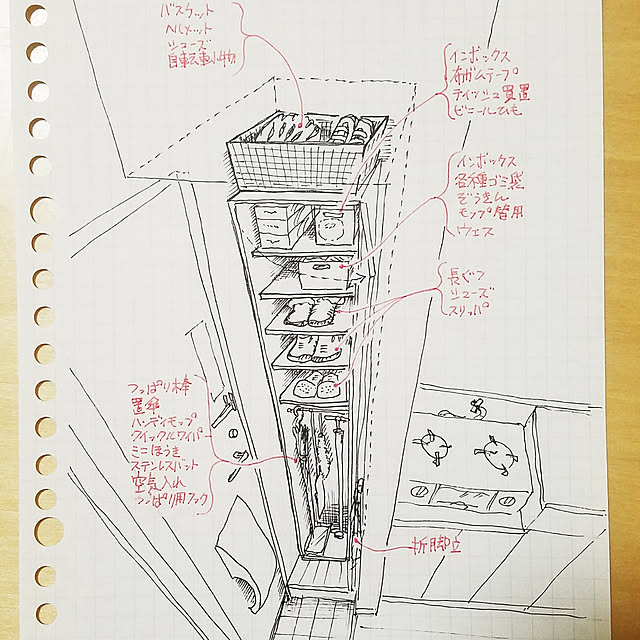 バスケット
ヘルメット
シューズ
自転車小物
インボックス
布ガムテープ
ティッシュ買置
ビニールひも
インボックス
各種ゴミ袋
ぞうきん
モップ替用
ウエス
長ぐつ
シューズ
スリッパ
つっぱり棒
置傘
ハンディモップ
クイックルワイパー
ミニほうき
ステンレスバット
空気入れ
つっぱり用フック
折脚立